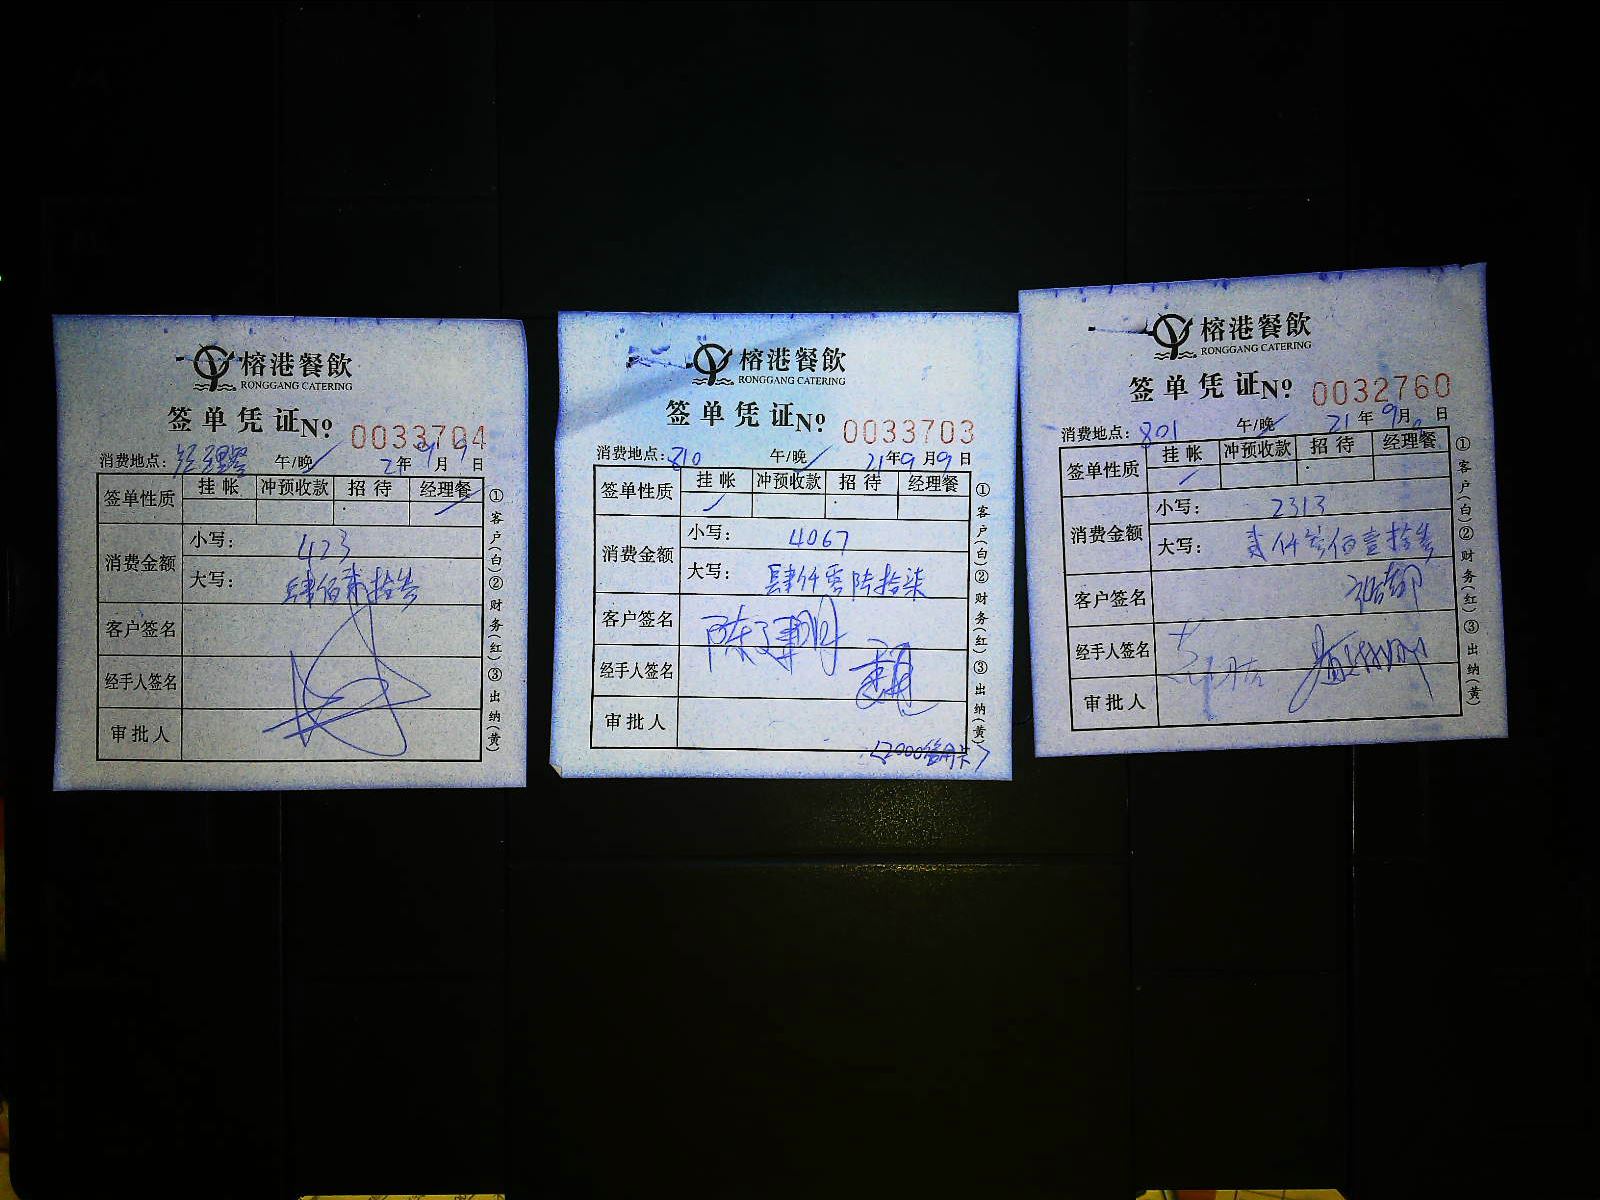 榕港餐飲
RONGGANG CATERING
签单凭证№ 0033704
消费地点: 经理餐 午/晚 2 年 9 月 9 日
签单性质 挂帐 冲预收款 招待 经理餐
消费金额 小写: 423
大写: 肆佰贰拾叁
客户签名
经手人签名
审批人
①客户(白)②财务(红)③出纳(黄)
榕港餐飲
RONGGANG CATERING
签单凭证№ 0033703
消费地点: 810 午/晚 21 年 9 月 9 日
签单性质 挂帐 冲预收款 招待 经理餐
消费金额 小写: 4067
大写: 肆仟零陆拾柒
客户签名 陈建明
经手人签名
审批人
(2000信用卡)
①客户(白)②财务(红)③出纳(黄)
榕港餐飲
RONGGANG CATERING
签单凭证№ 0032760
消费地点: 801 午/晚 21 年 9 月 日
签单性质 挂帐 冲预收款 招待 经理餐
消费金额 小写: 2313
大写: 贰仟叁佰壹拾叁
客户签名
经手人签名
审批人
①客户(白)②财务(红)③出纳(黄)